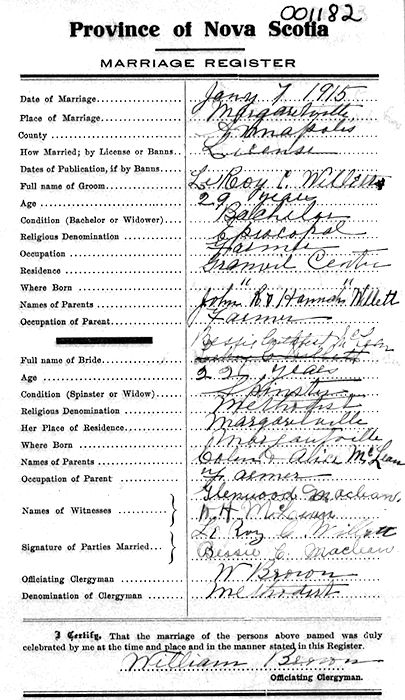 001182
Province of Nova Scotia
MARRIAGE REGISTER
Date of Marriage Jany 7 1915
Place of Marriage Margaretville
County Annapolis
How Married; by License or Banns License
Dates of Publication, if by Banns
Full name of Groom Le Roy C. Willett
Age 29 years
Condition (Bachelor or Widower) Batchelor
Religious Denomination Episcopal
Occupation Farmer
Residence Granvil Center
Where Born " "
Names of Parents John R & Hannah Willett
Occupation of Parent Farmer
Full name of Bride Bessie McLean
Age 22 years
Condition (Spinster or Widow) Spinster
Religious Denomination Methodist
Her Place of Residence Margaretville
Where Born Margaretville
Names of Parents & Alice McLean
Occupation of Parent Farmer
Names of Witnesses Glenwood Maclean,
H McLean
Signature of Parties Married Le Roy C. Willett
Bessie C. Maclean
Officiating Clergyman W Brown
Denomination of Clergyman Methodist
I Certify, That the marriage of the persons above named was duly
celebrated by me at the time and place and in the manner stated in this Register.
William Brown
Officiating Clergyman.